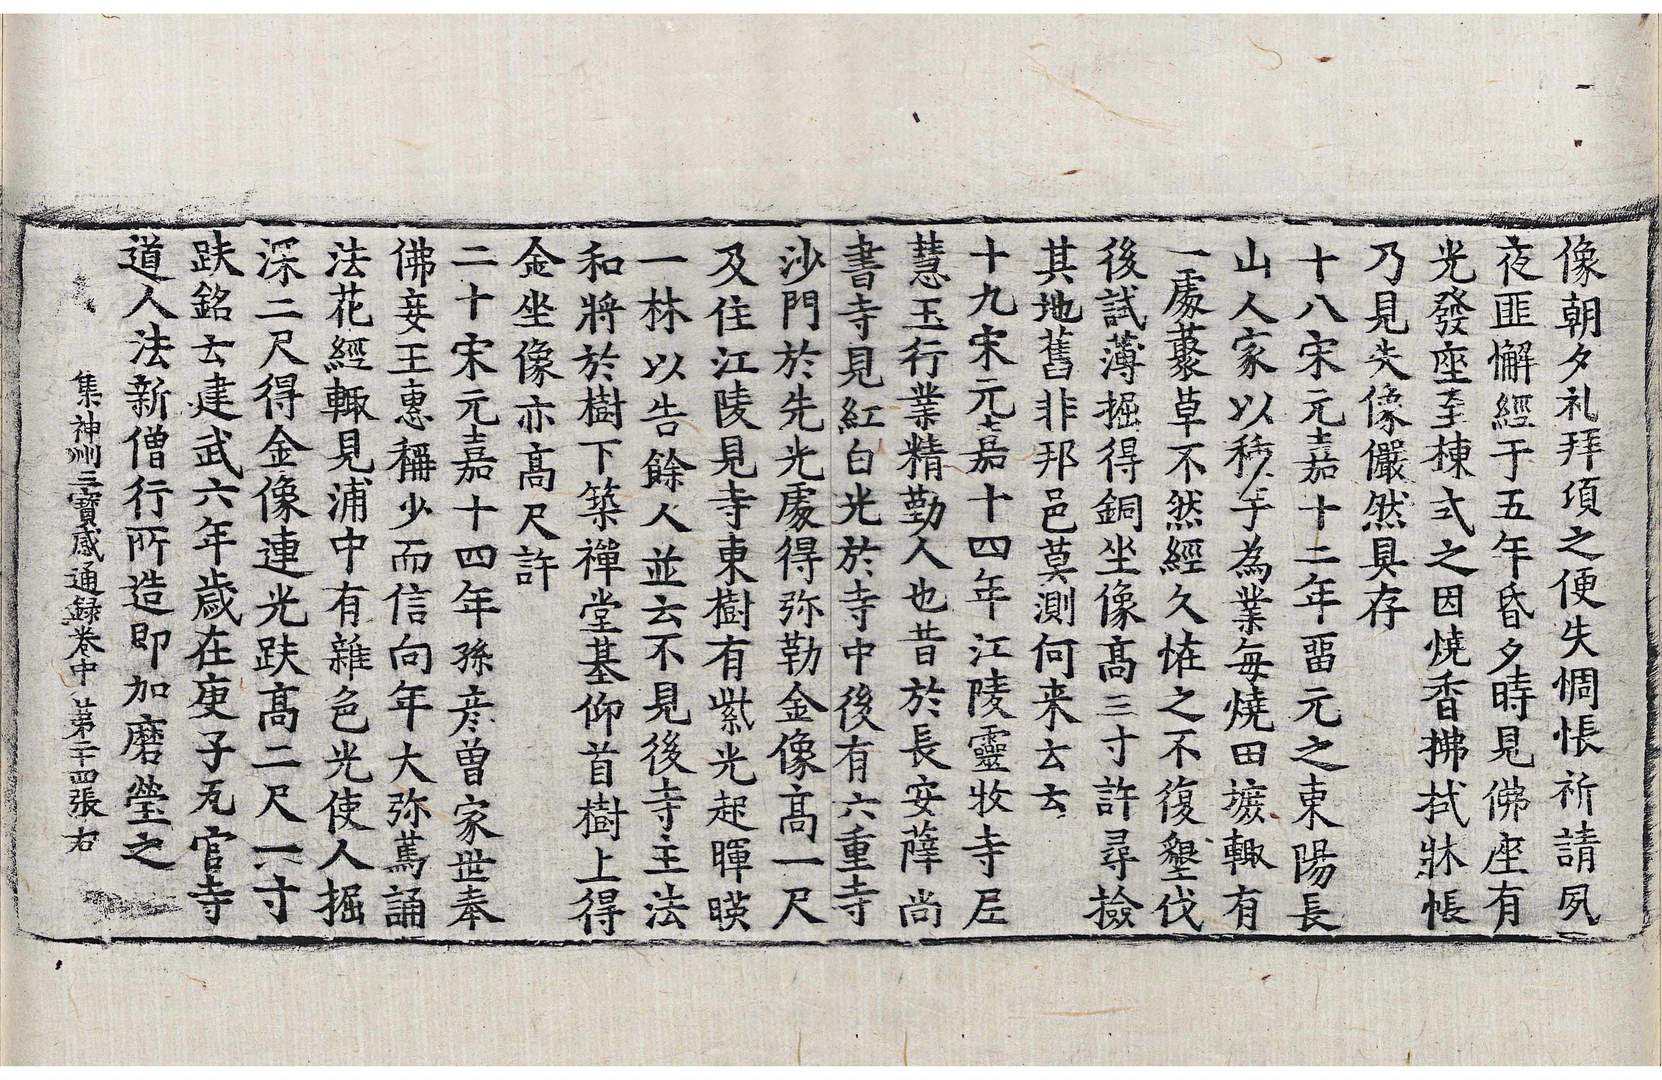 像朝夕礼拜須之便失惆悵祈請夙
夜匪懈經于五年昏夕時見佛座有
光發座至棟弍之因燒香拂拭牀帳
乃見失像儼然具存
十八宋元嘉十二年留元之東陽長
山人家以種芋為業每燒田墢輙有
一處叢草不然經久恠之不復墾伐
後試薄掘得銅坐像髙三寸許尋撿
其地舊非邦邑莫測何来云云
十九宋元嘉十四年江陵靈牧寺尼
慧玉行業精勤人也昔於長安薛尚
書寺見紅白光於寺中後有六重寺
沙門於先光處得弥勒金像髙一尺
及住江陵見寺東樹有紫光起暉暎
一林以告餘人並云不見後寺主法
和將於樹下築禪堂基仰首樹上得
金坐像亦髙尺許
二十宋元嘉十四年孫彦曾家世奉
佛妾王惠稱少而信向年大弥篤誦
法花經輙見浦中有雜色光使人掘
深二尺得金像連光趺髙二尺一寸
趺銘云建武六年歲在庚子瓦官寺
道人法新僧行所造即加磨瑩之
集神州三寶感通録卷中 第二十四張 右